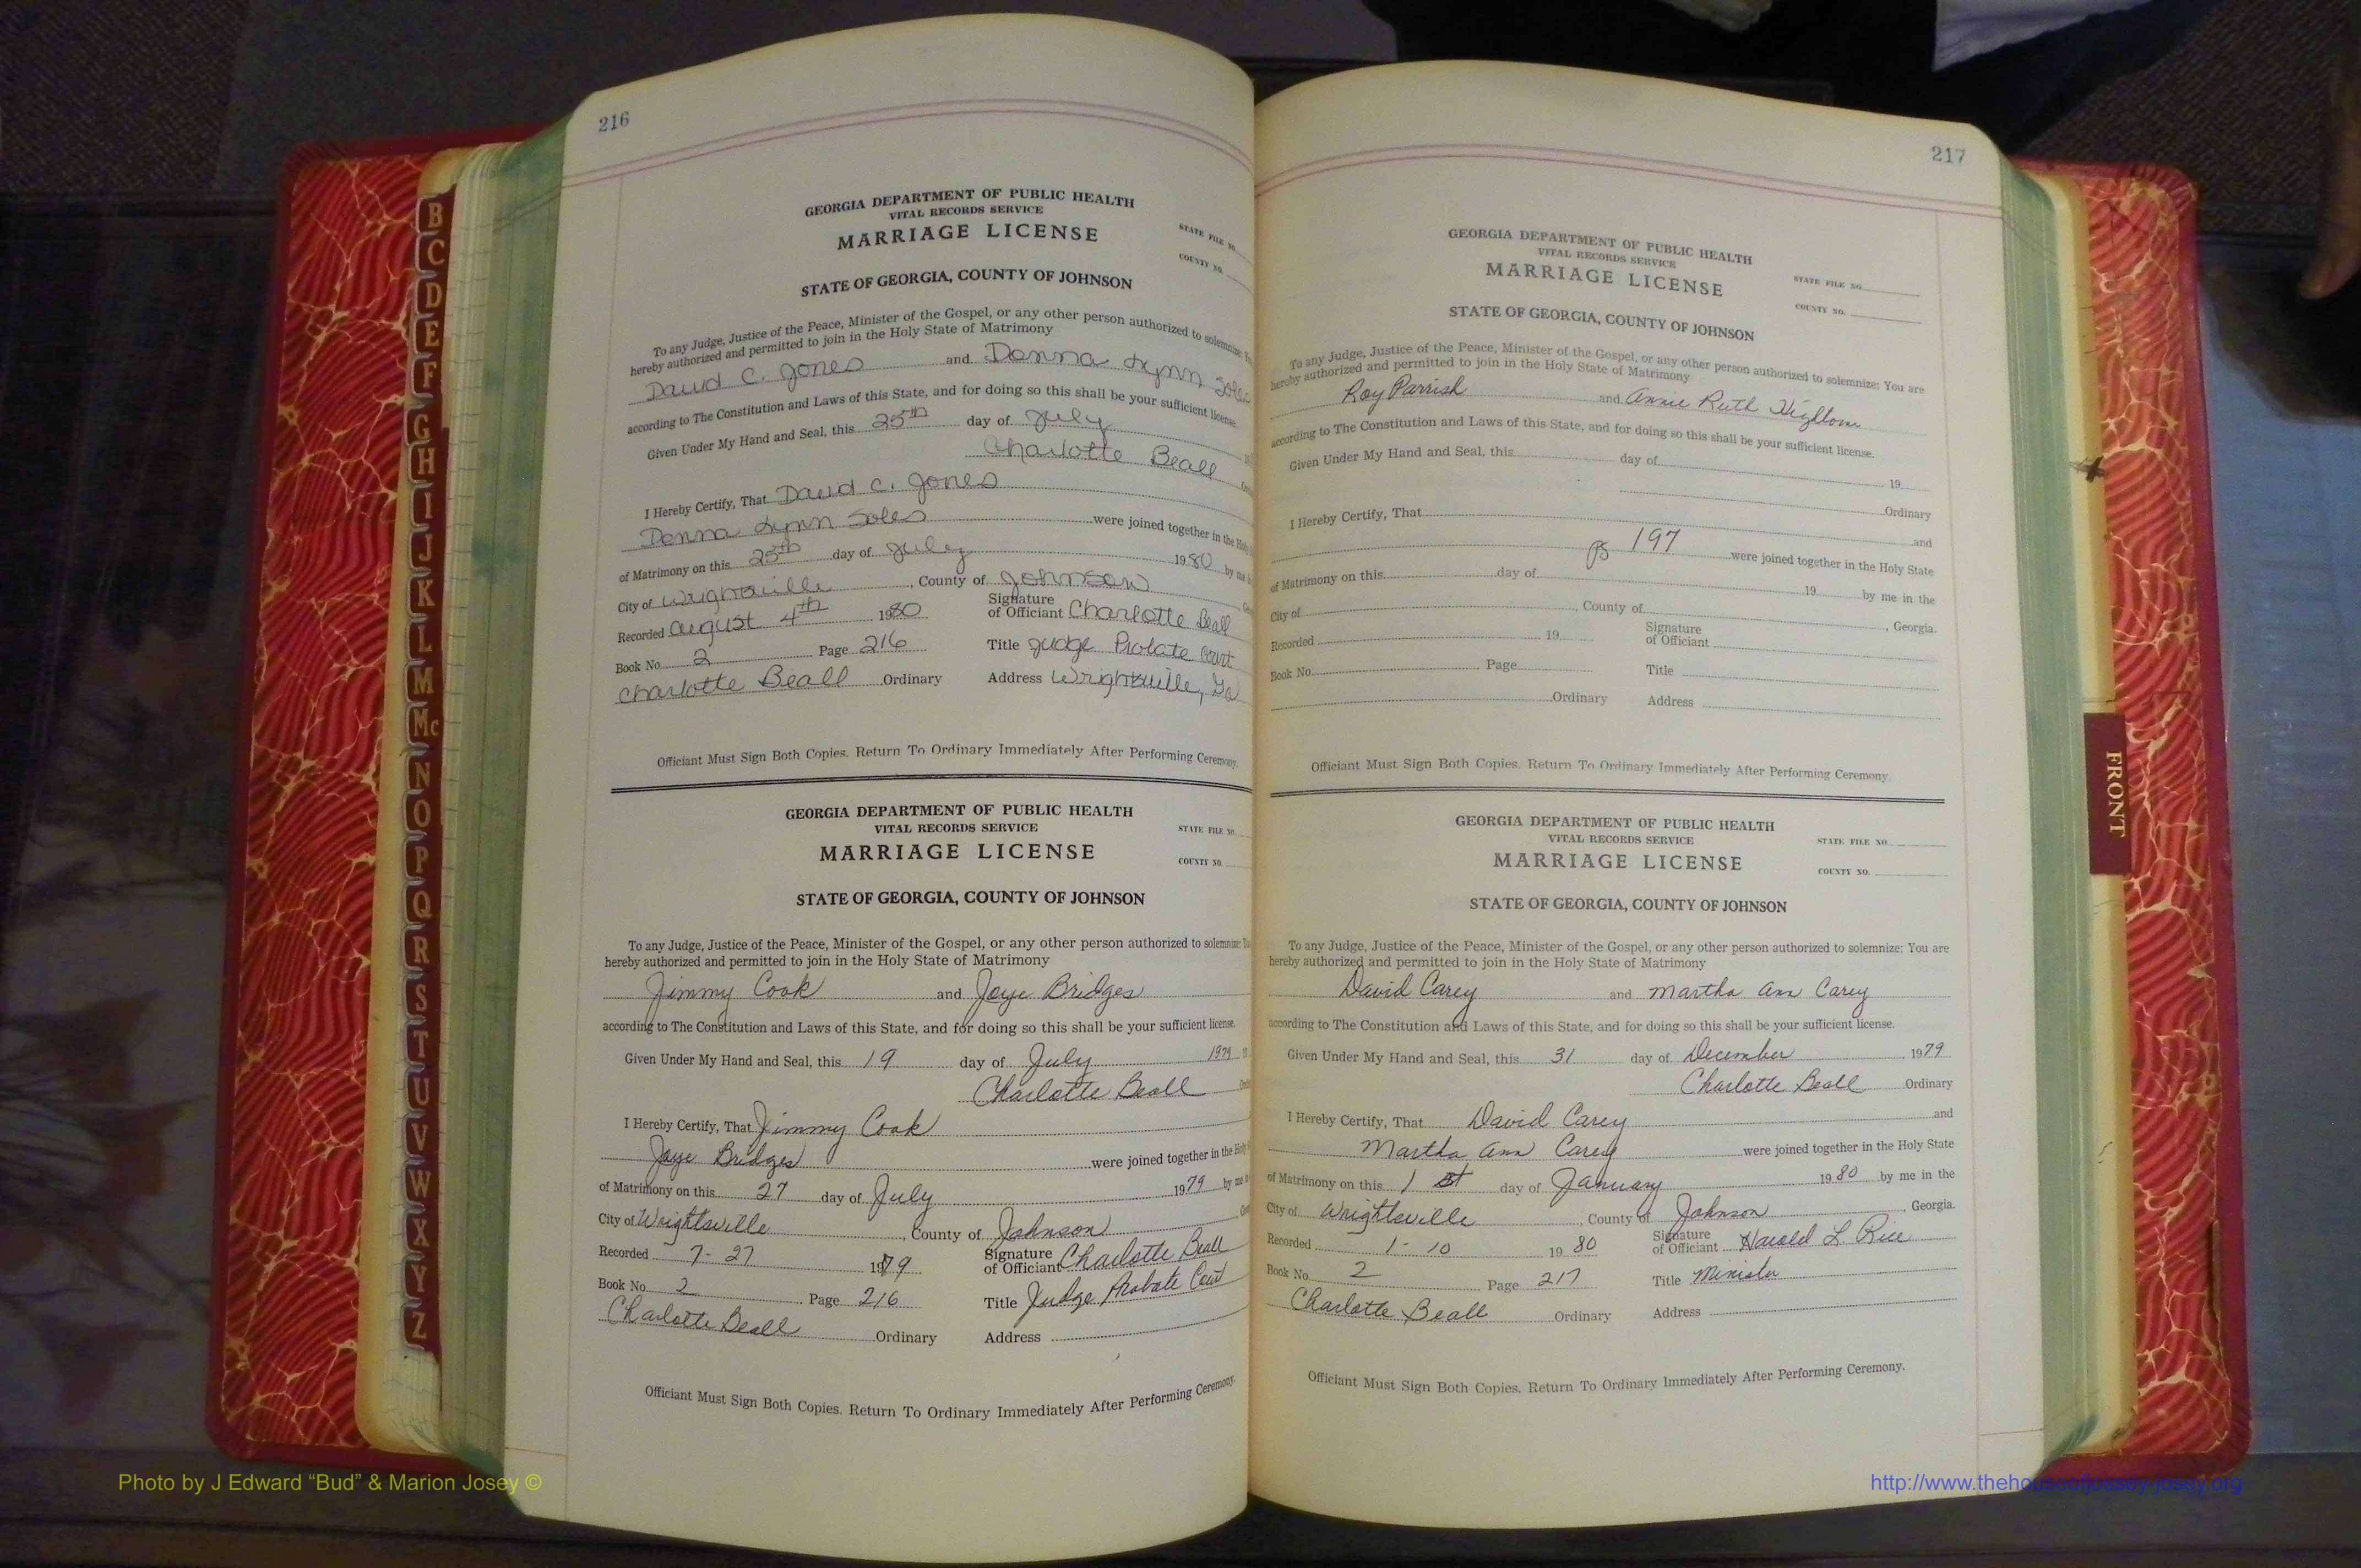 216
GEORGIA DEPARTMENT OF PUBLIC HEALTH
VITAL RECORDS SERVICE
MARRIAGE LICENSE
STATE FILE NO.
COUNTY NO.
STATE OF GEORGIA, COUNTY OF JOHNSON
To any Judge, Justice of the Peace, Minister of the Gospel, or any other person authorized to solemnize:
hereby authorized and permitted to join in the Holy State of Matrimony
David C. Jones and Donna Lynn Soles
according to The Constitution and Laws of this State, and for doing so this shall be your sufficient license.
Given Under My Hand and Seal, this 25th day of July
Charlotte Beall
I Hereby Certify, That David C. Jones
Donna Lynn Soles were joined together in the Holy
of Matrimony on this 25th day of July 1980 by me
City of Wrightsville, County of Johnson
Recorded August 4th 1980 Signature of Officiant Charlotte Beall
Book No. 2 Page 216 Title Judge Probate Court
Charlotte Beall Ordinary Address Wrightsville, Ga
Officiant Must Sign Both Copies. Return To Ordinary Immediately After Performing Ceremony.
GEORGIA DEPARTMENT OF PUBLIC HEALTH
VITAL RECORDS SERVICE
MARRIAGE LICENSE
STATE FILE NO.
COUNTY NO.
STATE OF GEORGIA, COUNTY OF JOHNSON
To any Judge, Justice of the Peace, Minister of the Gospel, or any other person authorized to solemnize:
hereby authorized and permitted to join in the Holy State of Matrimony
Jimmy Cook and Jaye Bridges
according to The Constitution and Laws of this State, and for doing so this shall be your sufficient license.
Given Under My Hand and Seal, this 19 day of July 1979
Charlotte Beall
I Hereby Certify, That Jimmy Cook
Jaye Bridges were joined together in the Holy
of Matrimony on this 27 day of July 1979 by me
City of Wrightsville, County of Johnson
Recorded 7-27 1979 Signature of Officiant Charlotte Beall
Book No. 2 Page 216 Title Judge Probate Court
Charlotte Beall Ordinary Address
Officiant Must Sign Both Copies. Return To Ordinary Immediately After Performing Ceremony.
217
GEORGIA DEPARTMENT OF PUBLIC HEALTH
VITAL RECORDS SERVICE
MARRIAGE LICENSE
STATE FILE NO.
COUNTY NO.
STATE OF GEORGIA, COUNTY OF JOHNSON
To any Judge, Justice of the Peace, Minister of the Gospel, or any other person authorized to solemnize: You are
hereby authorized and permitted to join in the Holy State of Matrimony
Roy Parrish and Annie Ruth
according to The Constitution and Laws of this State, and for doing so this shall be your sufficient license.
Given Under My Hand and Seal, this day of 19
Ordinary
I Hereby Certify, That and
pg 197 were joined together in the Holy State
of Matrimony on this day of 19 by me in the
City of , County of , Georgia.
Recorded 19 Signature of Officiant
Book No. Page Title
Ordinary Address
Officiant Must Sign Both Copies. Return To Ordinary Immediately After Performing Ceremony.
GEORGIA DEPARTMENT OF PUBLIC HEALTH
VITAL RECORDS SERVICE
MARRIAGE LICENSE
STATE FILE NO.
COUNTY NO.
STATE OF GEORGIA, COUNTY OF JOHNSON
To any Judge, Justice of the Peace, Minister of the Gospel, or any other person authorized to solemnize: You are
hereby authorized and permitted to join in the Holy State of Matrimony
David Carey and Martha Ann Carey
according to The Constitution and Laws of this State, and for doing so this shall be your sufficient license.
Given Under My Hand and Seal, this 31 day of December 1979
Charlotte Beall Ordinary
I Hereby Certify, That David Carey and
Martha Ann Carey were joined together in the Holy State
of Matrimony on this 1 st day of January 1980 by me in the
City of Wrightsville, County of Johnson, Georgia.
Recorded 1-10 1980 Signature of Officiant Harold L. Rice
Book No. 2 Page 217 Title Minister
Charlotte Beall Ordinary Address
Officiant Must Sign Both Copies. Return To Ordinary Immediately After Performing Ceremony.
B
C
D
E
F
G
H
I
J
K
L
M
Mc
N
O
P
Q
R
S
T
U
V
W
X
Y
Z
FRONT
Photo by J Edward “Bud” & Marion Josey ©
http://www.thehouseofjossey-josey.org